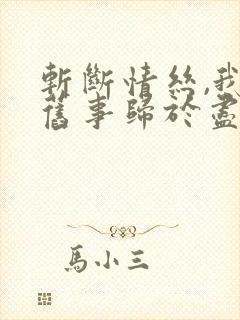 斬斷情絲,我
舊事歸於盡
馬小三